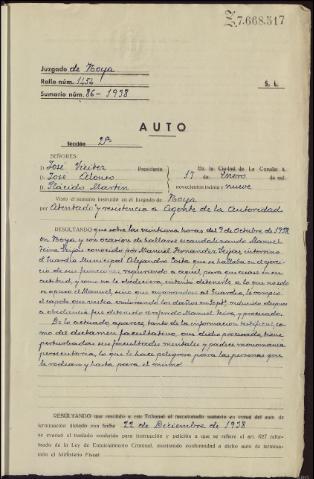 7.668.517
Juzgado de Noya
Rollo núm. 1454
Sumario núm. 86-1938
S. L.
AUTO
Sección 2ª
SEÑORES:
D. José Presidente
D. José Alonso
D. Plácido Martín
En la Ciudad de La Coruña a
17 de Enero de mil
novecientos treinta y nueve
Visto el sumario instruido en el Juzgado de Noya
por
Atentado y resistencia a Agente de la Autoridad
RESULTANDO que sobre las veintiuna horas del 9 de Octubre de 1938
en Noya y con ocasión de hallarse escandalizando Manuel
conocido por Manuel Fernández intervino
el Guardia Municipal Alejandro que se hallaba en el ejerci-
cio de sus funciones requiriendo a aquél para que cesase en su
actitud, y como no le obedeciera, intentó detenerle, a lo que
el Manuel, al Guardia,
el capote que vestía
fué detenido el referido Manuel, y procesado.
De lo actuado aparece, tanto de la información testifical, co-
mo de dictamen facultativo, que dicho procesado tiene
perturbadas sus facultades mentales y padece
lo que le hace peligroso para las personas que
le rodean y hasta para él mismo
RESULTANDO que remitido a este Tribunal el mencionado sumario en virtud del auto de
terminación dictado con fecha 22 de Diciembre de 1938
se evacuó el traslado conferido para instrucción y petición a que se refiere el art. 627 refor-
mado de la Ley de Enjuiciamiento Criminal, mostrando conformidad a dicho auto de termina-
ción el Ministerio Fiscal